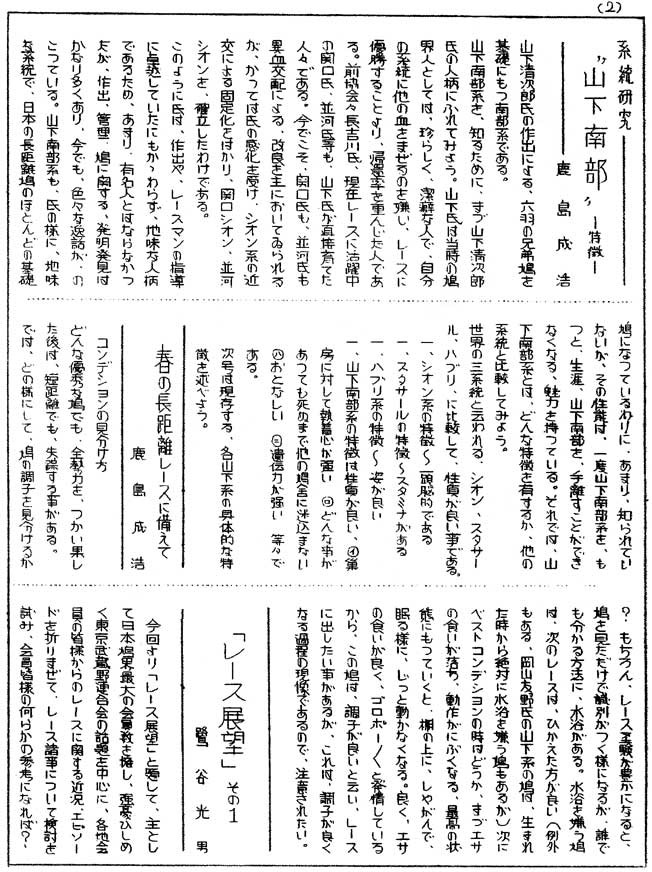 (2)
系統研究
"山下南部"
ー特徴ー
鹿島成浩
山下清次郎氏の作出による、六羽の兄弟鳩を
基礎にもつ南部系である。
山下南部系を、知るために、まづ山下清次郎
氏の人柄にふれてみよう。山下氏は当時の鳩
界人としては、珍らしく、潔癖な人で、自分
の系統に他の血をまぜるのを嫌い、レースに
優勝することより、帰還率を重んじた人であ
る。前協会々長吉川氏、現在レースに活躍中
の関口氏、並河氏等も、山下氏が直接育てた
人々である。今でこそ、関口氏も、並河氏も
異血交配による、改良を主においてゐられる
が、かつては氏の感化を受け、シオン系の近
交による固定化をはかり、関口シオン、並河
シオンを、確立したわけである。
このように氏は、作出や、レースマンの指導
に卓越していたにもかゝわらず、地味な人柄
であるため、あまり、有名人とはならなかつ
たが、作出、管理、鳩に関する、発明発見は
かなり多くあり、今でも、色々な逸話が、の
こつている。山下南部系も、氏の様に、地味
な系統で、日本の長距離鳩のほとんどの基礎
鳩になつているわりに、あまり、知られてい
ないが、その性能は、一度山下南部系を、も
つと、生涯、山下南部を、手離すことができ
なくなる、魅力を持つている。それでは、山
下南部系とは、どんな特徴を有するか、他の
系統と比較してみよう。
世界の三系統と云われる、シオン、スタサー
ル、ハブリ、に比較して、性質が良い事である。
一、シオン系の特徴〜頭脳的である
一、スタサールの特徴〜スタミナがある
一、ハブリ系の特徴〜姿が良い
一、山下南部系の特徴は性質が良い、㋑巣
房に対して執着心が強い ㋺どんな事が
あつても死ぬまで他の鳩舎に迷込まない
㋩おとなしい ㋥遺伝力が強い 等々で
ある。
次号は現存する、各山下系の具体的な特
徴を述べよう。
春の長距離レースに備えて
鹿島成浩
コンデションの見分け方
どんな優秀な鳩でも、全勢力を、つかい果し
た後は、短距離でも、失踪する事がある。
では、どの様にして、鳩の調子を見分けるか
?もちろん、レース経験が豊かになると、
鳩を見ただけで識別がつく様になるが、誰で
も分かる方法に、水浴がある。水浴を嫌う鳩
は、次のレースは、ひかえた方が良い(例外
もある、岡山友野氏の山下系の鳩は、生まれ
た時から絶対に水浴を嫌う鳩もあるが)次に
ベストコンデションの時はどうか、まづエサ
の食いが落ち、動作がにぶくなる、最高の状
態にもつていくと、棚の上に、しやがんで、
眠る様に、じつと動かなくなる。良く、エサ
の食いが良く、ゴロポー/\と発情している
から、この鳩は、調子が良いと云い、レース
に出したい事があるが、これは、調子が良く
なる過程の現象であるので、注意されたい。
「レース展望」その1
鷺谷光男
今回より「レース展望」と題して、主とし
て日本鳩界最大の会員数を擁し、強豪ひしめ
く東京武蔵野連合会の話題を中心に、各地会
員の皆様からのレースに関する近況、エピソー
ドを折りまぜて、レース諸事について検討を
試み、会員皆様の何らかの参考になれば?・